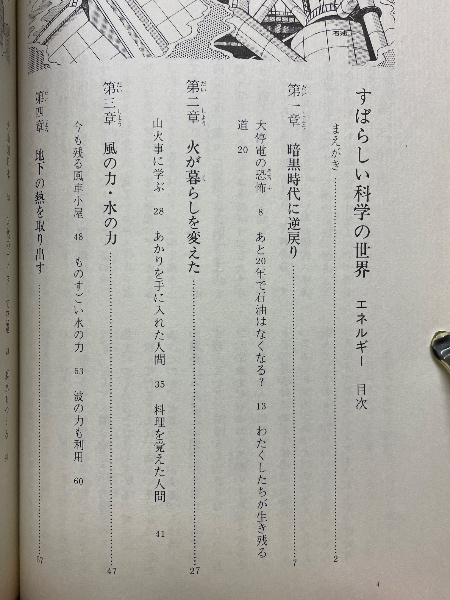 石油
すばらしい科学の世界 エネルギー 目次
まえがき……2
第一章 暗黒時代に逆戻り……7
大停電の恐怖 8 あと20年で石油はなくなる? 13 わたくしたちが生き残る
道 20
第二章 火が暮らしを変えた……27
山火事に学ぶ 28 あかりを手に入れた人間 35 料理を覚えた人間 41
第三章 風の力・水の力……47
今も残る風車小屋 48 ものすごい水の力 53 波の力も利用 60
第四章 地下の熱を取り出す……
4